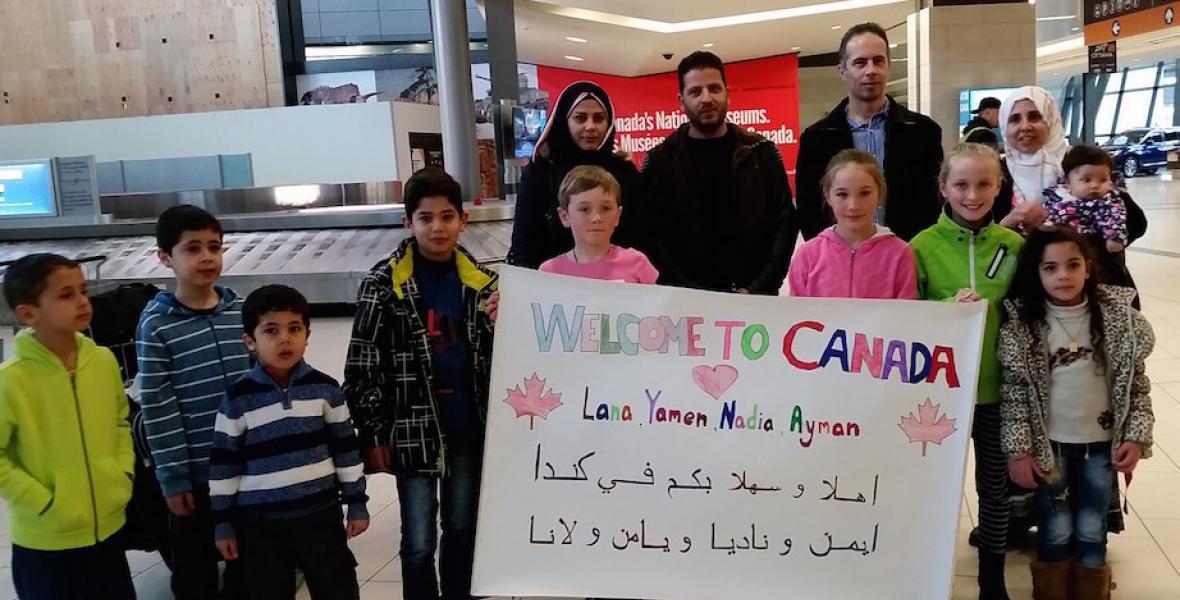 anada's National Museums.
Musées
Canada.
WELCOME TO CANADA
Lana, Yamen, Nadia, Ayman
اهلا و سهلا بكم في كندا
ايمن و ناديا و يامن و لانا